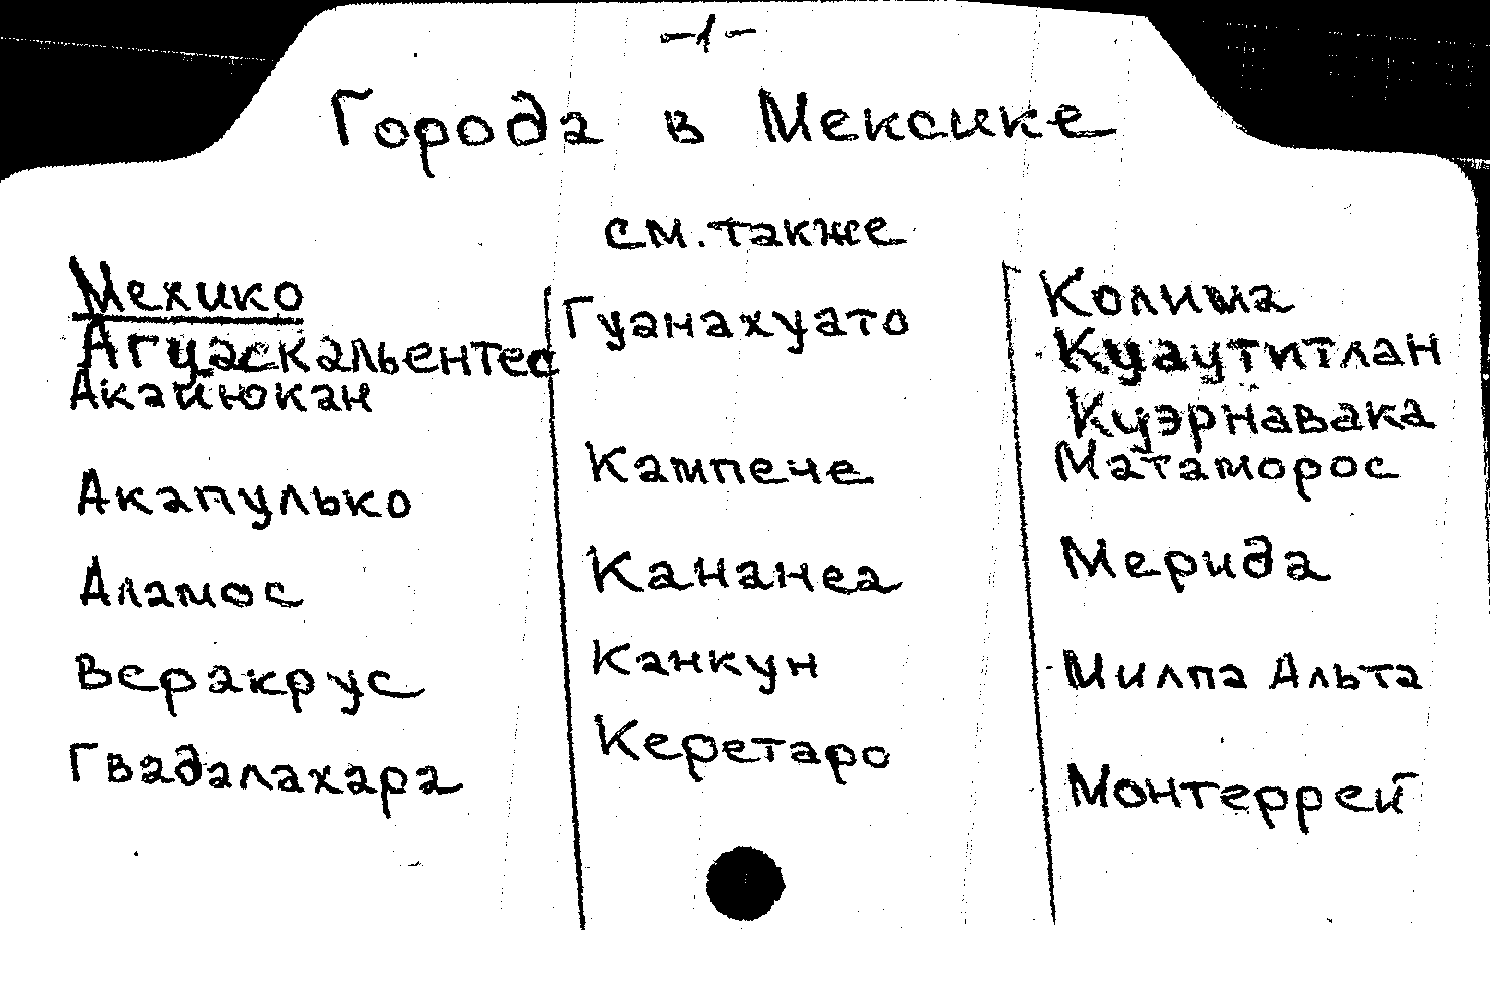 -1-
Города в Мексике
см. также
Мехико
Агуаскальентес
Акайюкан
Акапулько
Аламос
Веракрус
Гвадалахара
Гуанахуато
Кампече
Кананеа
Канкун
Керетаро
Колима
Куаутитлан
Куэрнавака
Матаморос
Мерида
Милпа Альта
Монтеррей